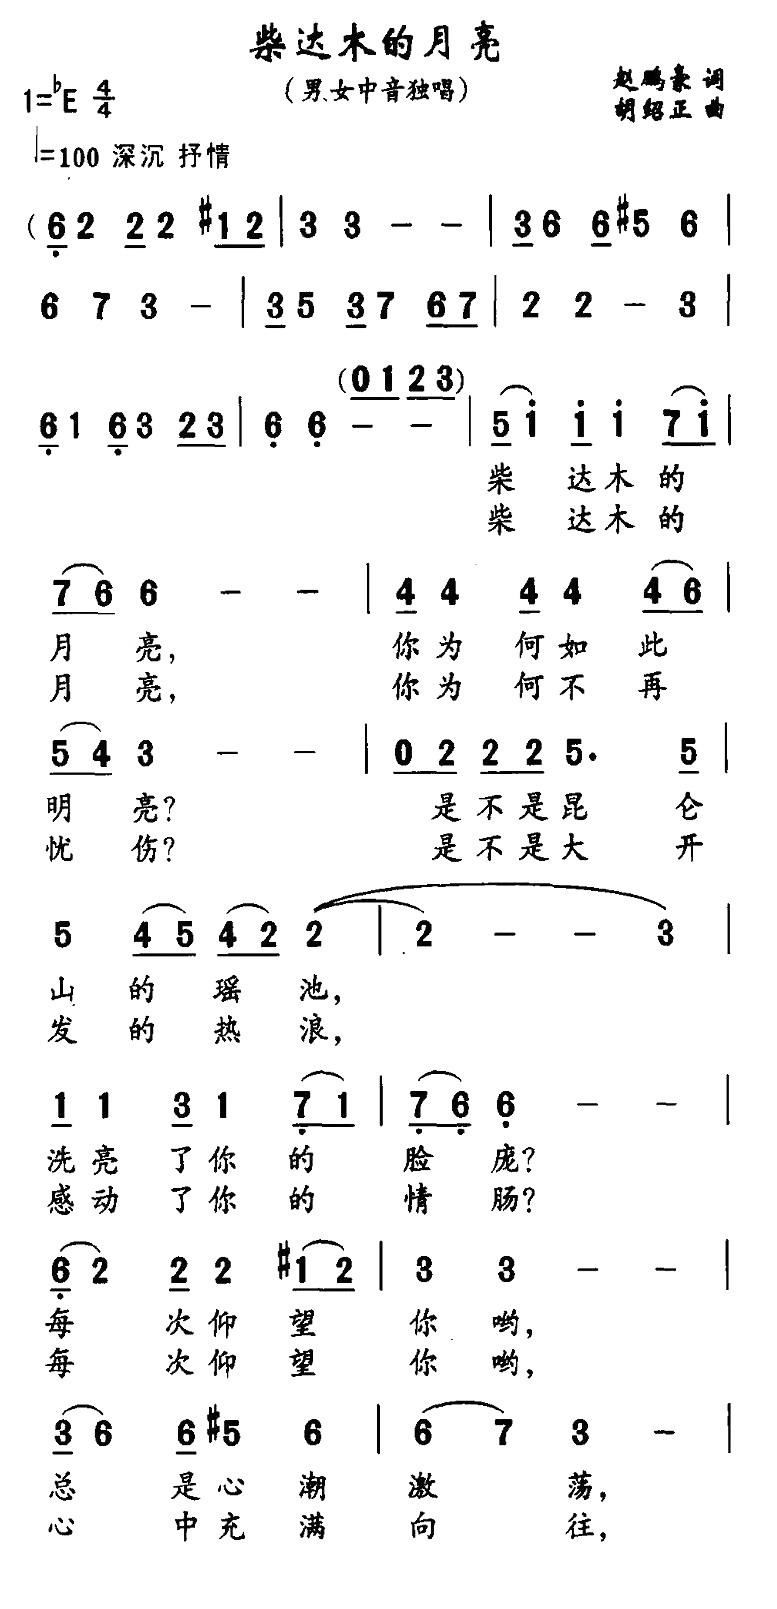 柴达木的月亮
（男、女中音独唱）
赵鹏豪 词
胡绍正 曲
1=♭E 4/4
♩=100 深沉 抒情
（6̣2 22 #12 | 3 3 – – | 36 6#5 6 |
6 7 3 – | 35 37 67 | 2 2 – 3 |
（0123）
6̣1 6̣3 23 | 6̣ 6̣ – – | 5i i i 7i |
柴 达木的
柴 达木的
76 6 – – | 44 44 46 |
月 亮， 你为 何如 此
月 亮， 你为 何不 再
54 3 – – | 02 22 5. 5 |
明 亮？ 是不是昆 仑
忧 伤？ 是不是大 开
5 45 42 2 | 2 – – 3 |
山 的 瑶 池，
发 的 热 浪，
11 31 7̣1 | 7̣6̣ 6̣ – – |
洗亮 了你 的 脸 庞？
感动 了你 的 情 肠？
6̣2 22 #12 | 3 3 – – |
每 次仰 望 你 哟，
每 次仰 望 你 哟，
36 6#5 6 | 6 7 3 – |
总 是心 潮 激 荡，
心 中充 满 向 往，